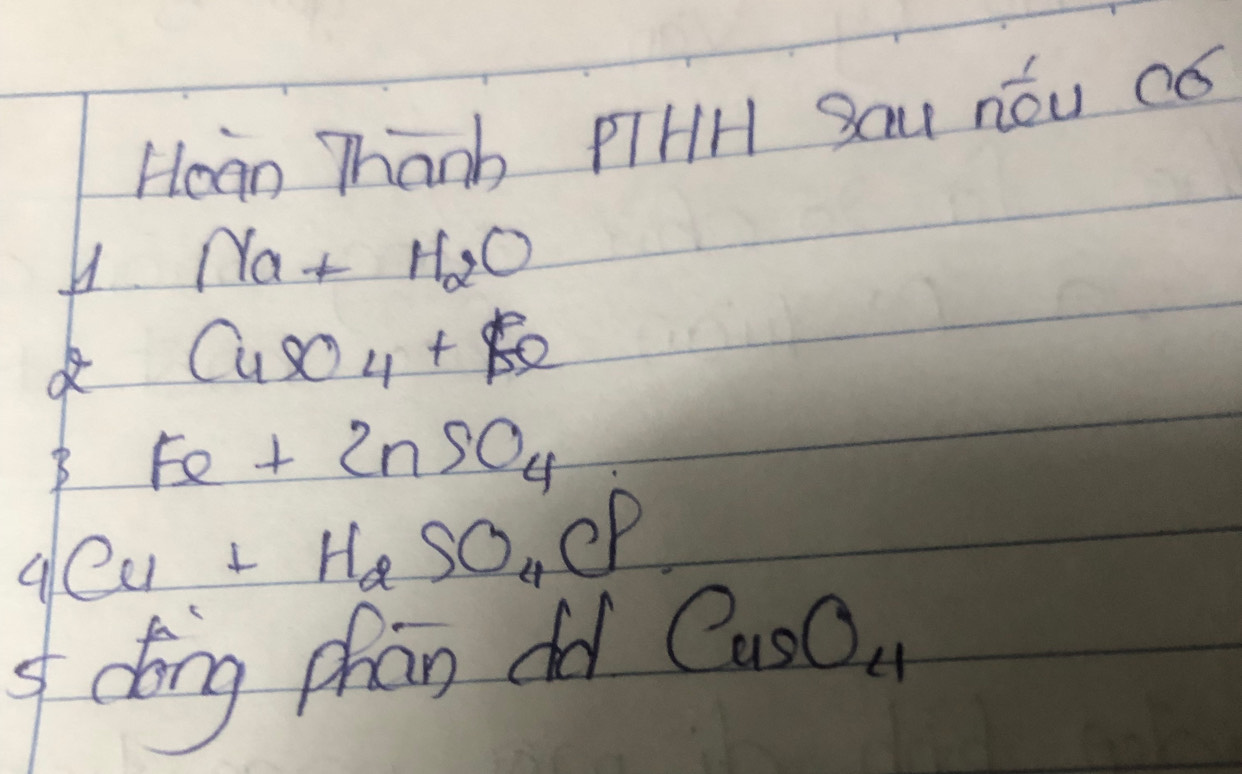 Hoàn Thành PTHH sau nếu có
1 Na + H2O
2 CuSO4 + Fe
3 Fe + ZnSO4
4 Cu + H2SO4
5 dòng phân dd CuSO4